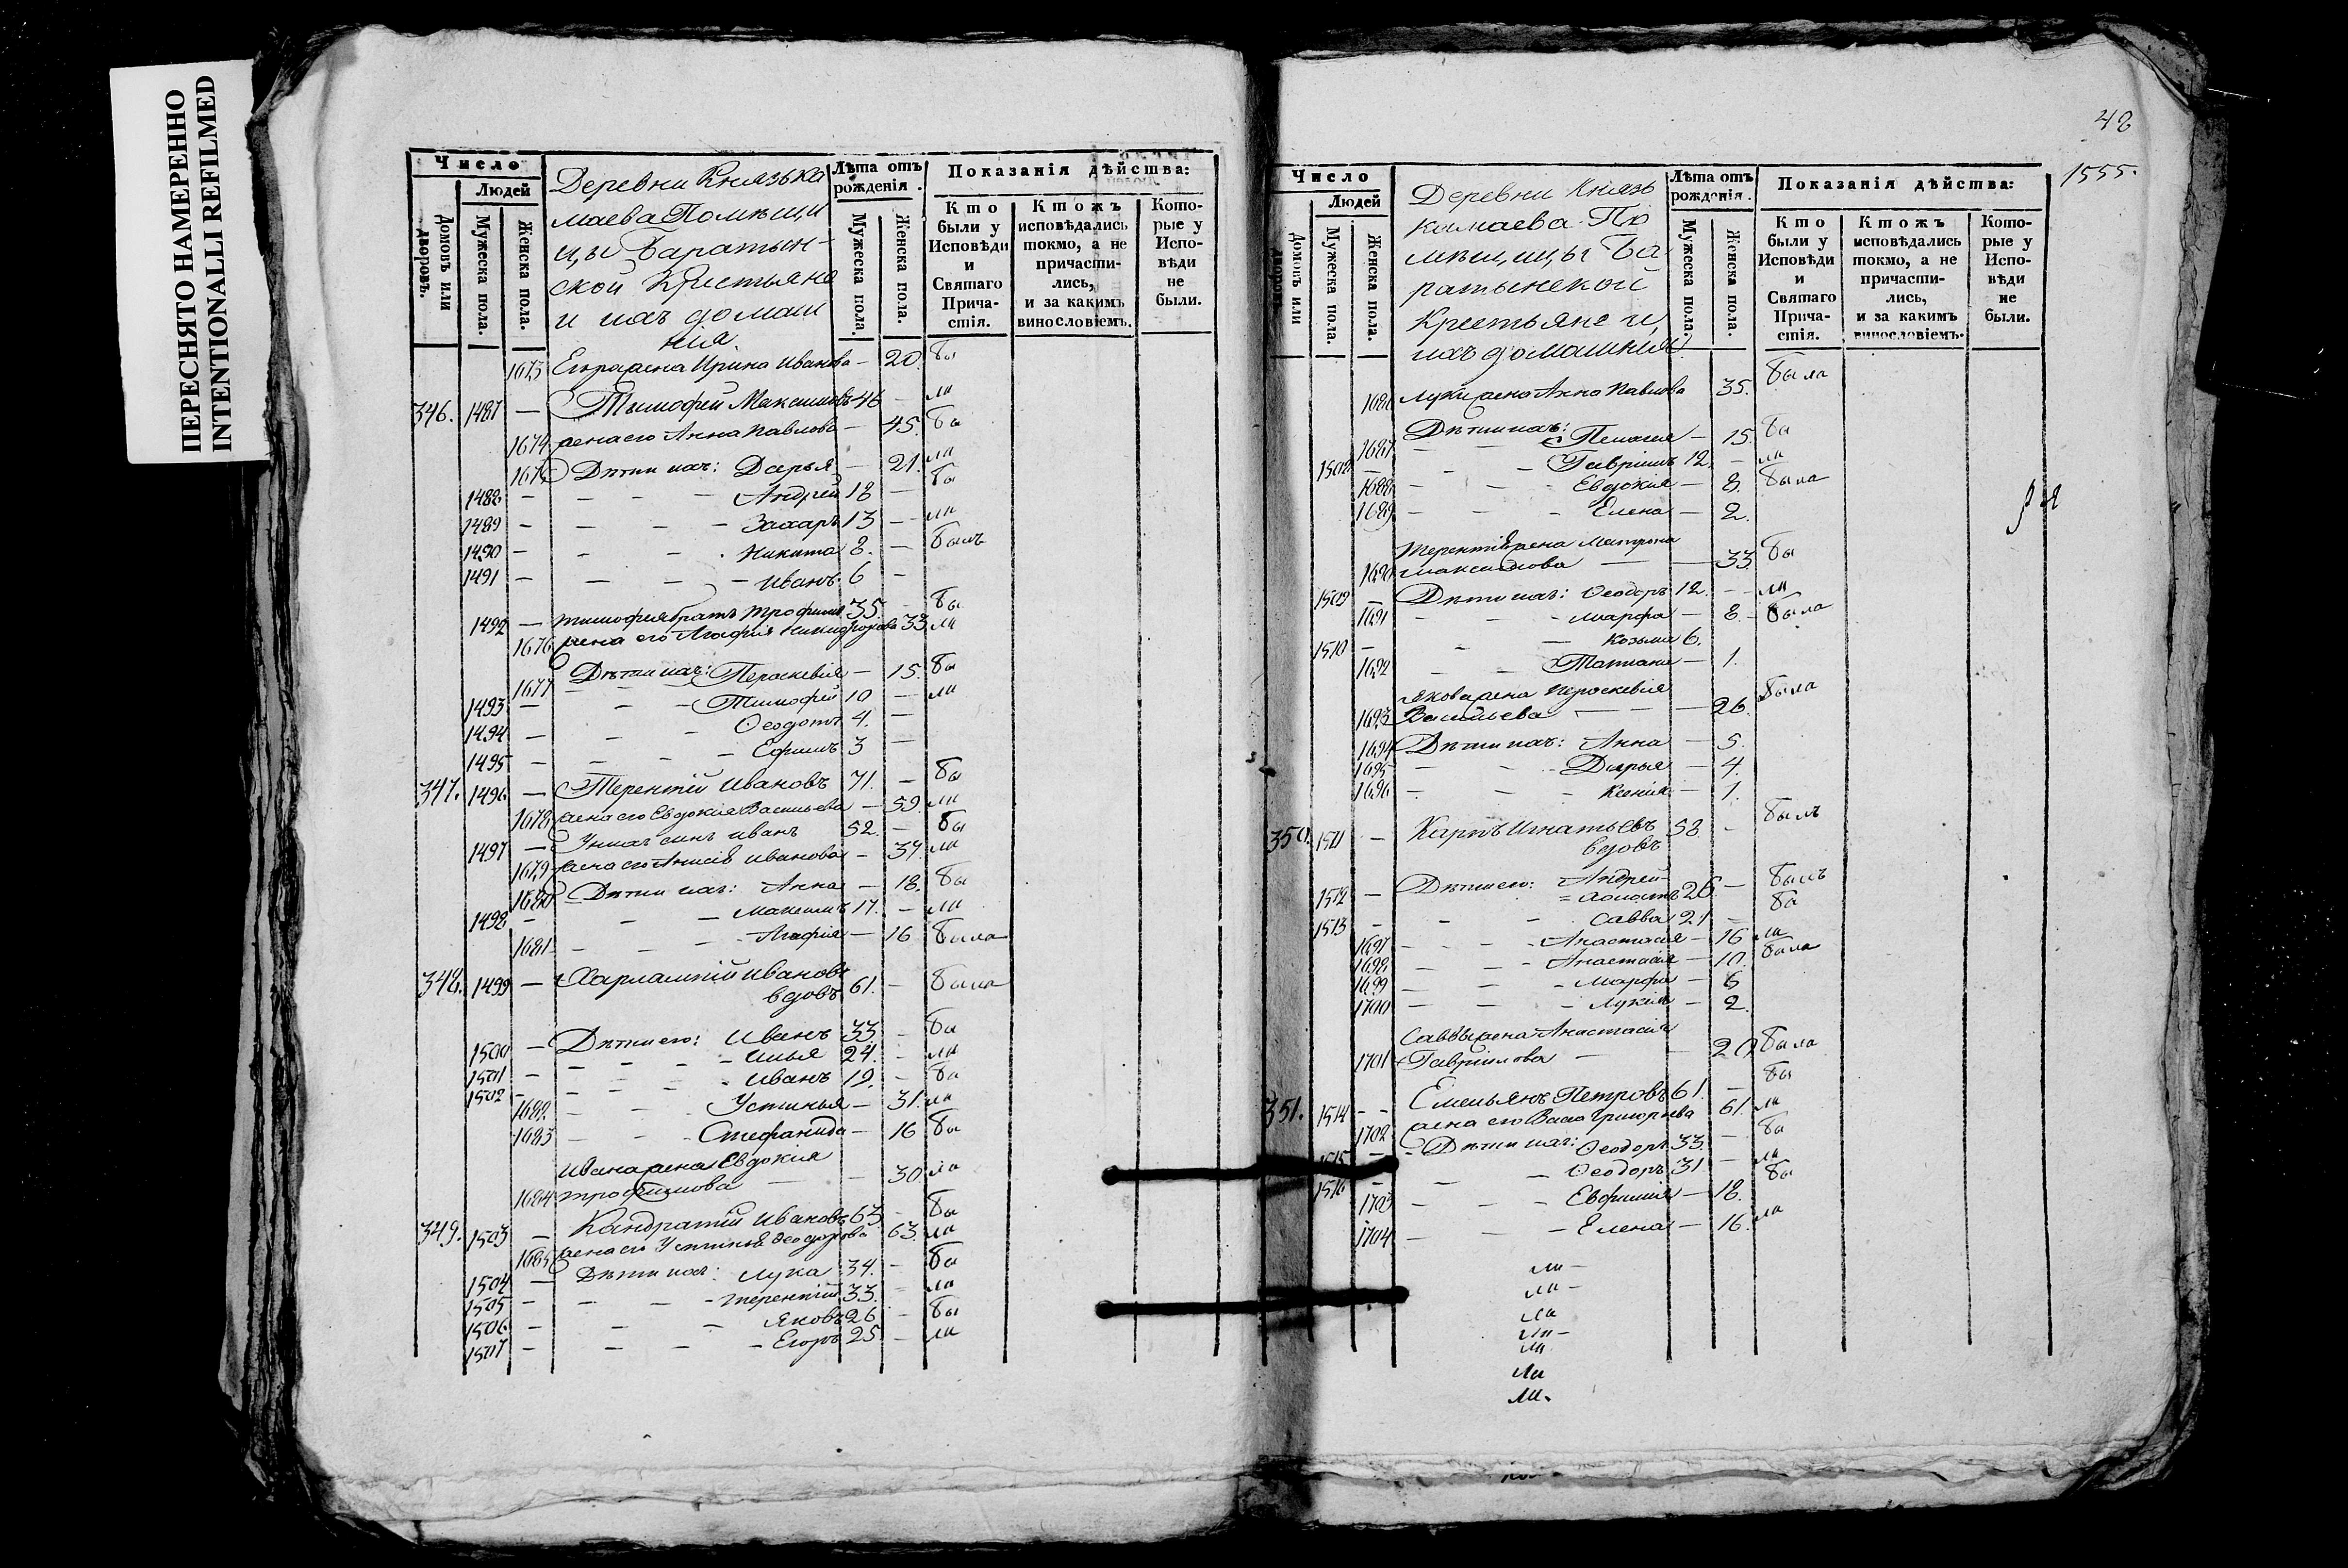 ПЕРЕСНЯТО НАМЕРЕННО
INTENTIONALLI REFILMED
Число
Людей
Домовъ или дворовъ.
Мужеска пола.
Женска пола.
Деревни Князька
маева Помѣщи
цы Баратын-
ской Крестьяне
и ихъ домаш
нія.
Лѣта отъ рожденія.
Мужеска пола.
Женска пола.
Показанія дѣйства:
Кто были у Исповѣди и Святаго Причастія.
Ктожъ исповѣдались токмо, а не причастились, и за какимъ винословіемъ.
Которые у Исповѣди не были.
1673 Егора жена Ирина Иванова — 20. бы
346. 1487 — Тимофей Максимовъ 46 — ли
1674 жена его Анна Павлова — 45. бы
1675 Дѣти ихъ: Дарья — 21. ли
1488 — — — — Андрей 18 — бы
1489 — — — — Захаръ 13 — ли
1490 — — — Никита 8. — былъ
1491 — — — — Иванъ 6 —
1492 — Тимофея братъ Трофимъ 35 — бы
1676 жена его Агафія Никифорова 33 ли
1677 Дѣти ихъ: Пераскевія — 15. бы
1493 — — — Тимофей 10 — ли
1494 — — — Ѳеодотъ 4. —
1495 — — — — Ефимъ 3 —
347. 1496 — Терентій Ивановъ 71. — бы
1678 жена его Евдокия Васильева — 59. ли
1497 — У нихъ сынъ Иванъ 52. — бы
1679 жена его Анисія Иванова — 37. ли
1680 Дѣти ихъ: Анна — 18. бы
1498 — — — Максимъ 17. — ли
1681 — — — Агафія — 16 была
348. 1499 — Харлампій Ивановъ
вдовъ 61. — былъ
1500 — Дѣти его: Иванъ 33 — бы
1501 — — — — Илья 24. — ли
1502 — — — — Иванъ 19. — бы
1682 — — Устинья — 31. ли
1683 — — Стефанида — 16 бы
Ивана жена Евдокия
1684 Трофимова — — 30. ла
349. 1503 — Кандратій Ивановъ 63 — бы
1685 жена его Устинья Ѳеодорова 63. ли
1504 — Дѣти ихъ: Лука 34. — бы
1505 — — — Терентій 33. — ли
1506 — — — Яковъ 26 — бы
1507 — — — — Егоръ 25 — ли
48
1555.
Число
Людей
Домовъ или дворовъ.
Мужеска пола.
Женска пола.
Деревни Князь
камаева По
мѣщицы Ба
ратынской
Крестьяне и
ихъ домашнія.
Лѣта отъ рожденія.
Мужеска пола.
Женска пола.
Показанія дѣйства:
Кто были у Исповѣди и Святаго Причастія.
Ктожъ исповѣдались токмо, а не причастились, и за какимъ винословіемъ.
Которые у Исповѣди не были.
1686 Луки жена Анна Павлова 35. была
Дѣти ихъ:
1687 — — Пелагия — 15. бы
1508 — — — Гавріилъ 12. — ли
1688 — — — Евдокия — 8. была
1689 — — — Елена — 2.
Терентія жена Матрона
1690 Максимова — — 33. бы
1509 — Дѣти ихъ: Ѳеодоръ 12. — ли
1691 — — — Марфа — 8. — была
1510 — — — Козьма 6.
1692 — — Татиана — 1.
Якова жена Пераскевія
1693 Васильева — — — 26. была
1694 Дѣти ихъ: Анна — 5.
1695 — — Дарья — 4.
1696 — — — Ксения — 1.
350. 1511 — Карпъ Игнатьевъ 58. — былъ
вдовъ
1512 — Дѣти его: Андрей
= холостъ 26 — былъ
1513 — — — Савва 21 — бы
1697 — — — Анастасія — 16 ли
1698 — — — Анастасія — 10. была
1699 — — — Марфа — 8
1700 — — — Лукія — 2.
Саввы жена Анастасія
1701 Гавриилова — — 20 была
351. 1514 — Емельянъ Петровъ 61. — бы
1702 жена его Васса Григорьева 61. ли
1515 — Дѣти ихъ: Ѳеодоръ 33. — бы
1516 — — — Ѳеодоръ 31 — ли
1703 — — — Евфимія — 18. бы
1704 — — — Елена — 16. ли
ли —
ли —
ли
ли —
ли
ли
ли.